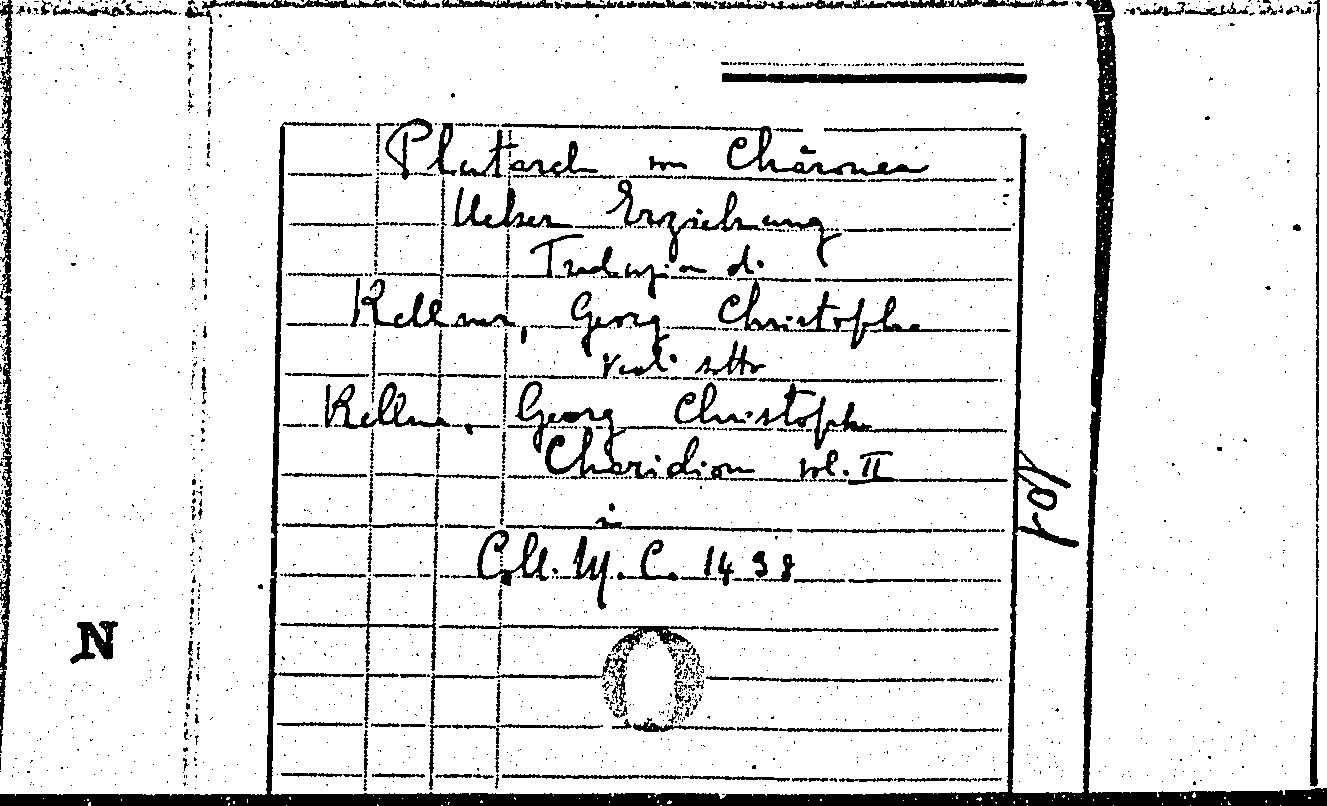 Plutarch von Chäronea
Ueber Erziehung
Traduzion di
Kellner, Georg Christoph
vedi sotto
Kellner, Georg Christoph
Charidion vol. II
in
Coll. M. C. 1438
N